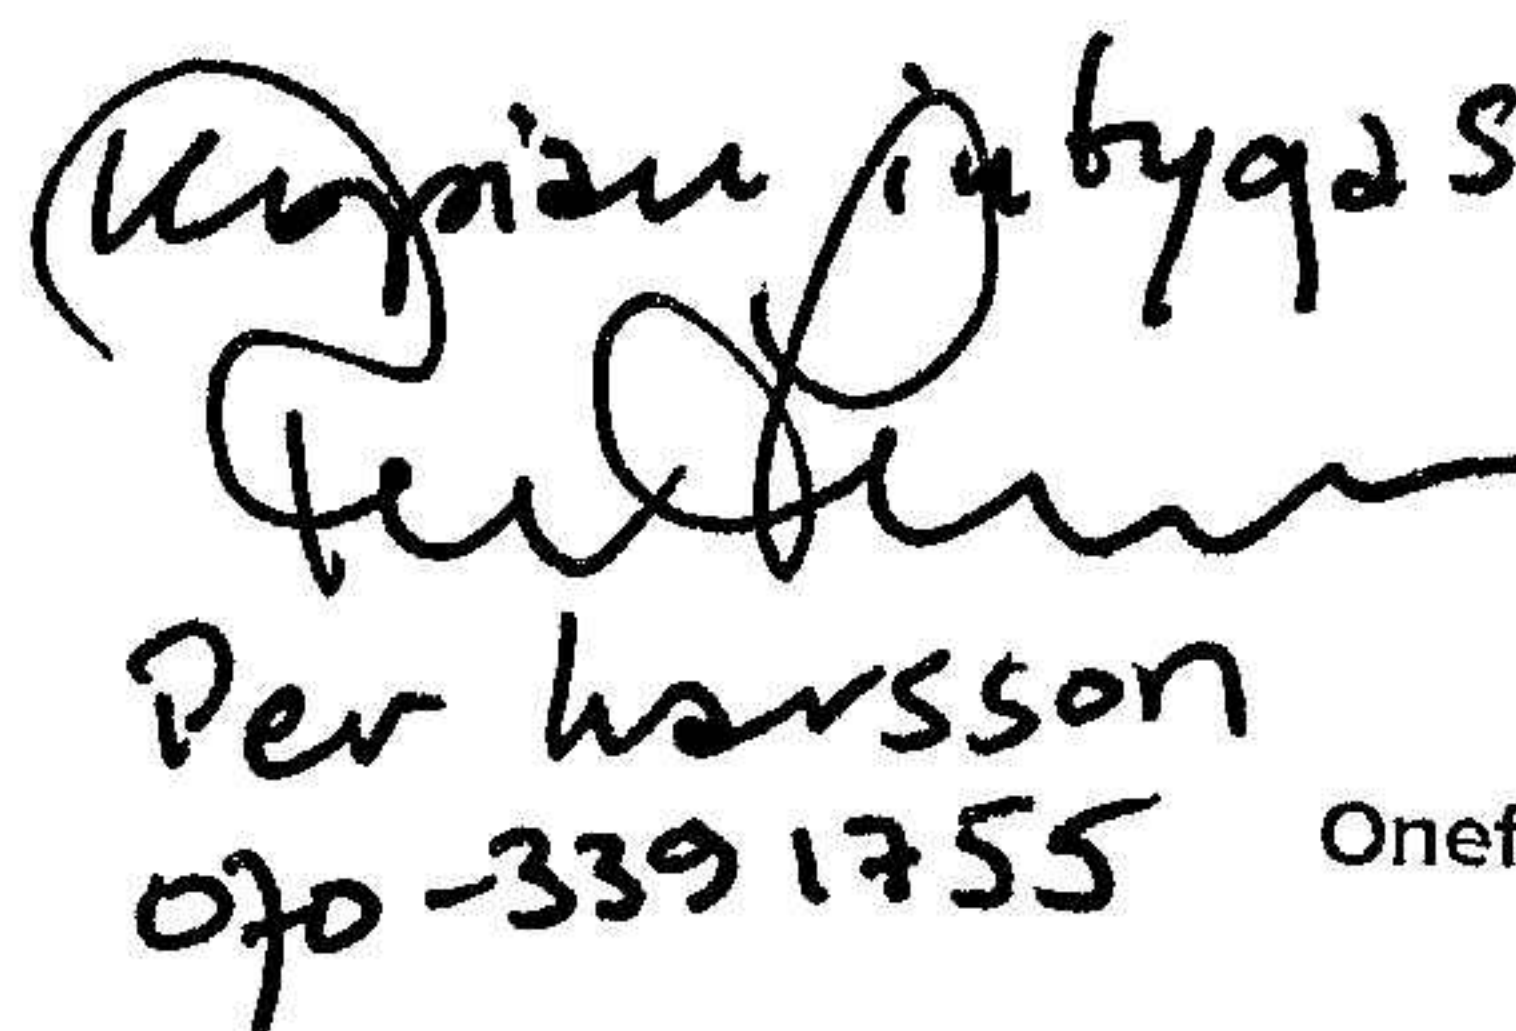 Kopian intygas
Per Larsson
070-339 1755
Onef